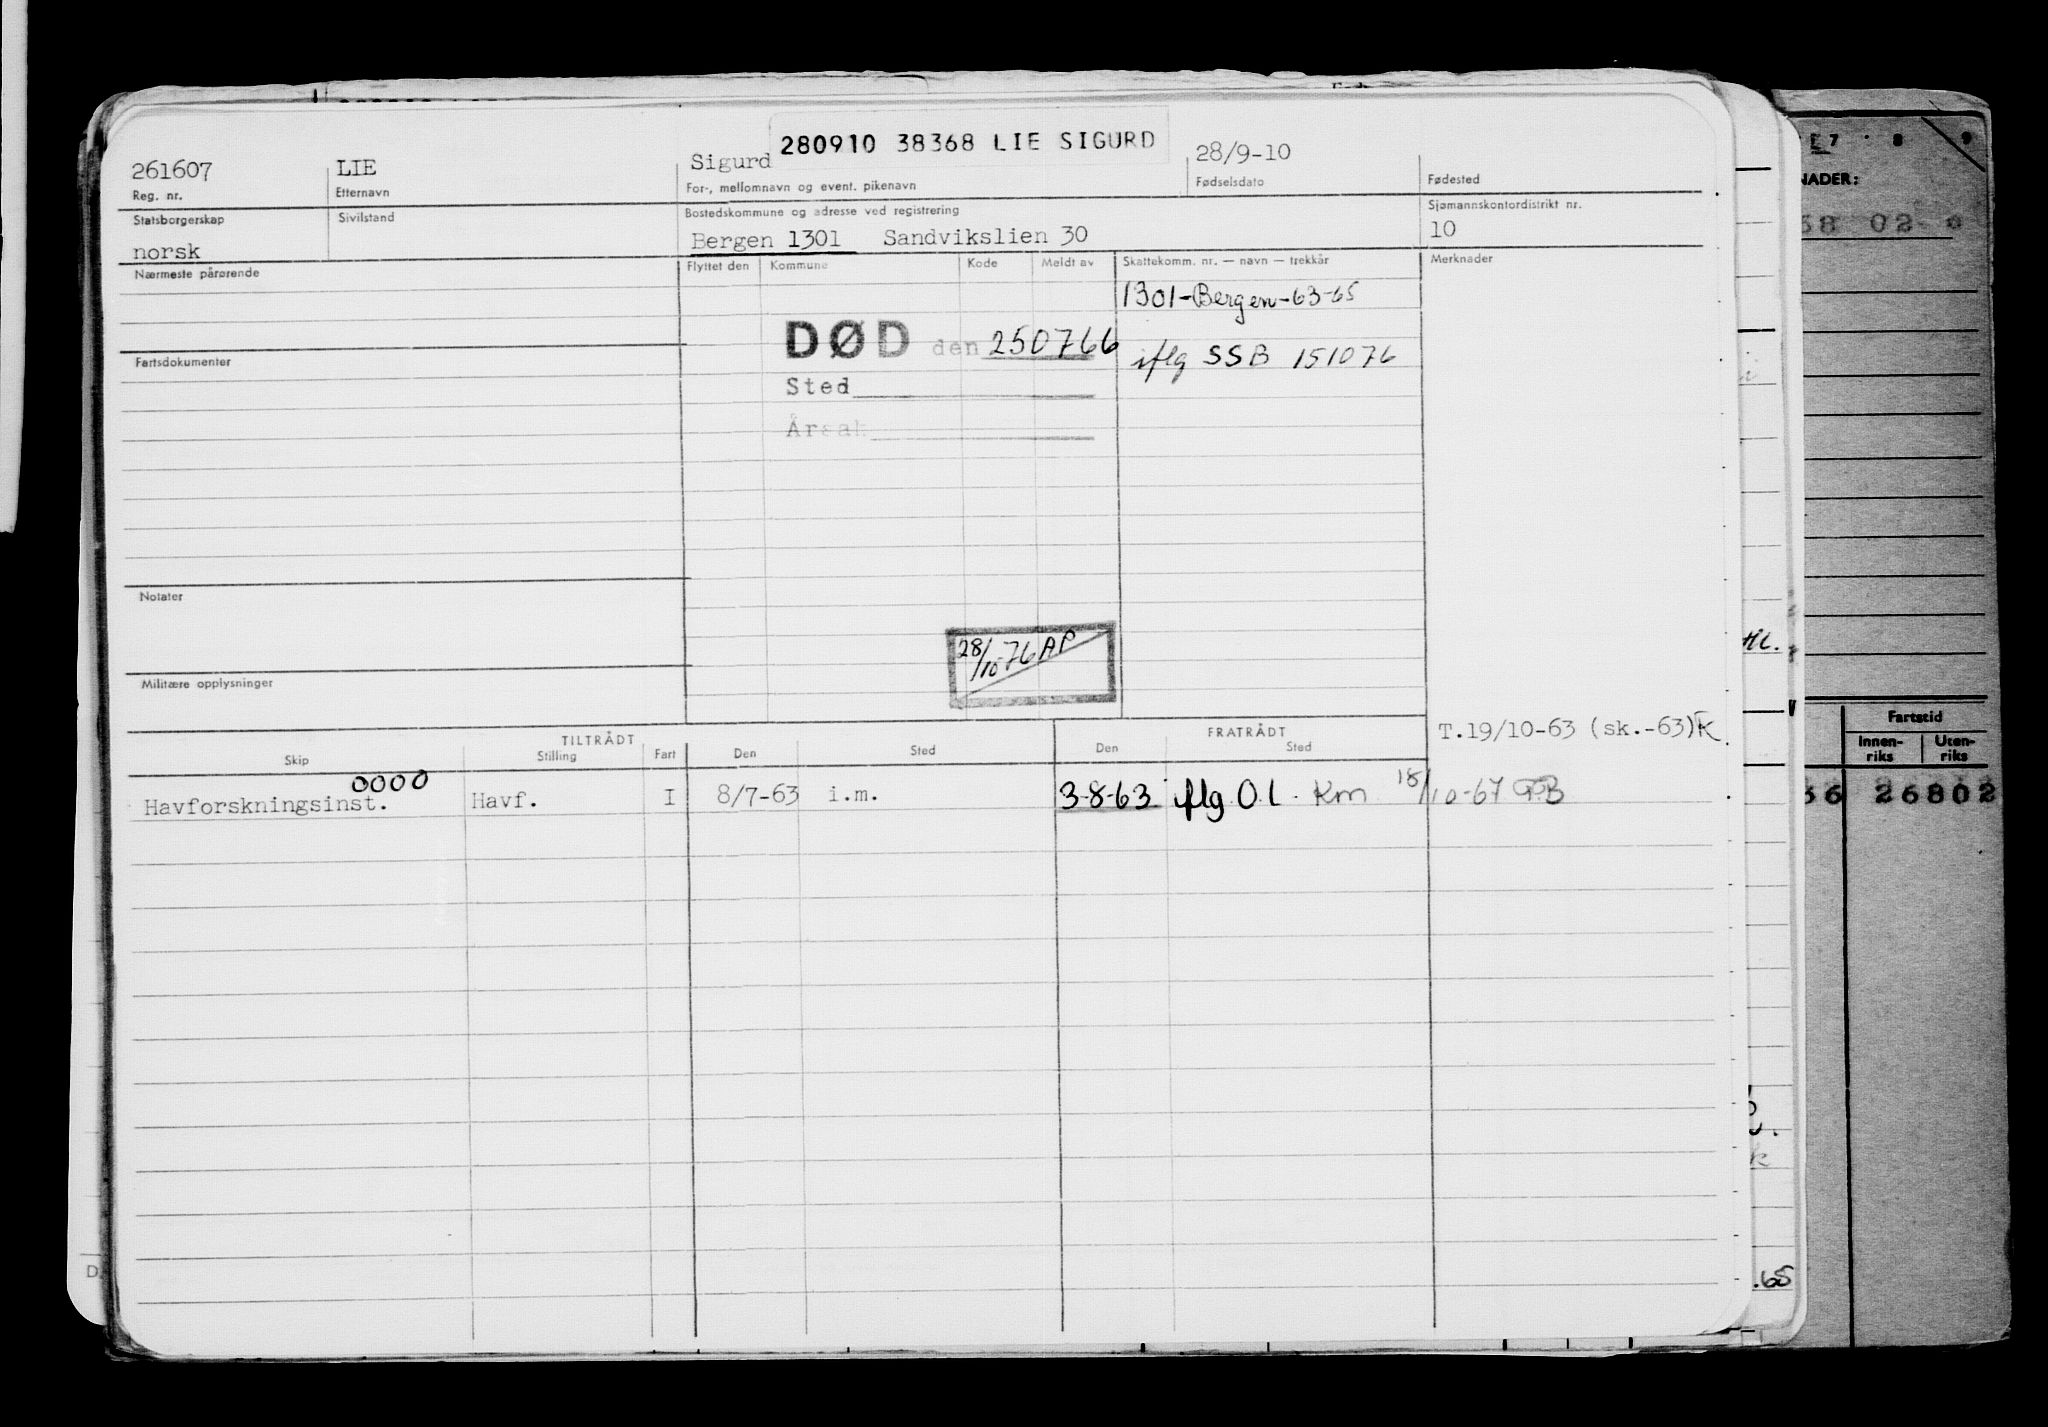 280910 38368 LIE SIGURD
261607 LIE Sigurd 28/9-10
Reg. nr. Etternavn For-, mellomnavn og event. pikenavn Fødselsdato Fødested
Statsborgerskap Sivilstand Bostedskommune og adresse ved registrering Sjømannskontordistrikt nr.
norsk Bergen 1301 Sandvikslien 30 10
Nærmeste pårørende Flyttet den Kommune Kode Meldt av Skattekomm. nr. — navn — trekkår Merknader
1301-Bergen-63-65
DØD den 250766 iflg SSB 151076
Fartsdokumenter
Sted
Årsak
Notater
28/10-76 AP
Militære opplysninger
T.19/10-63 (sk.-63) K
TILTRÅDT FRATRÅDT
Skip Stilling Fart Den Sted Den Sted
0000
Havforskningsinst. Havf. I 8/7-63 i.m. 3-8-63 iflg. O.l. Km 18/10-67
E7 8 9
NADER:
58 02
Fartstid
Innen-riks Uten-riks
36 26802
.65
D